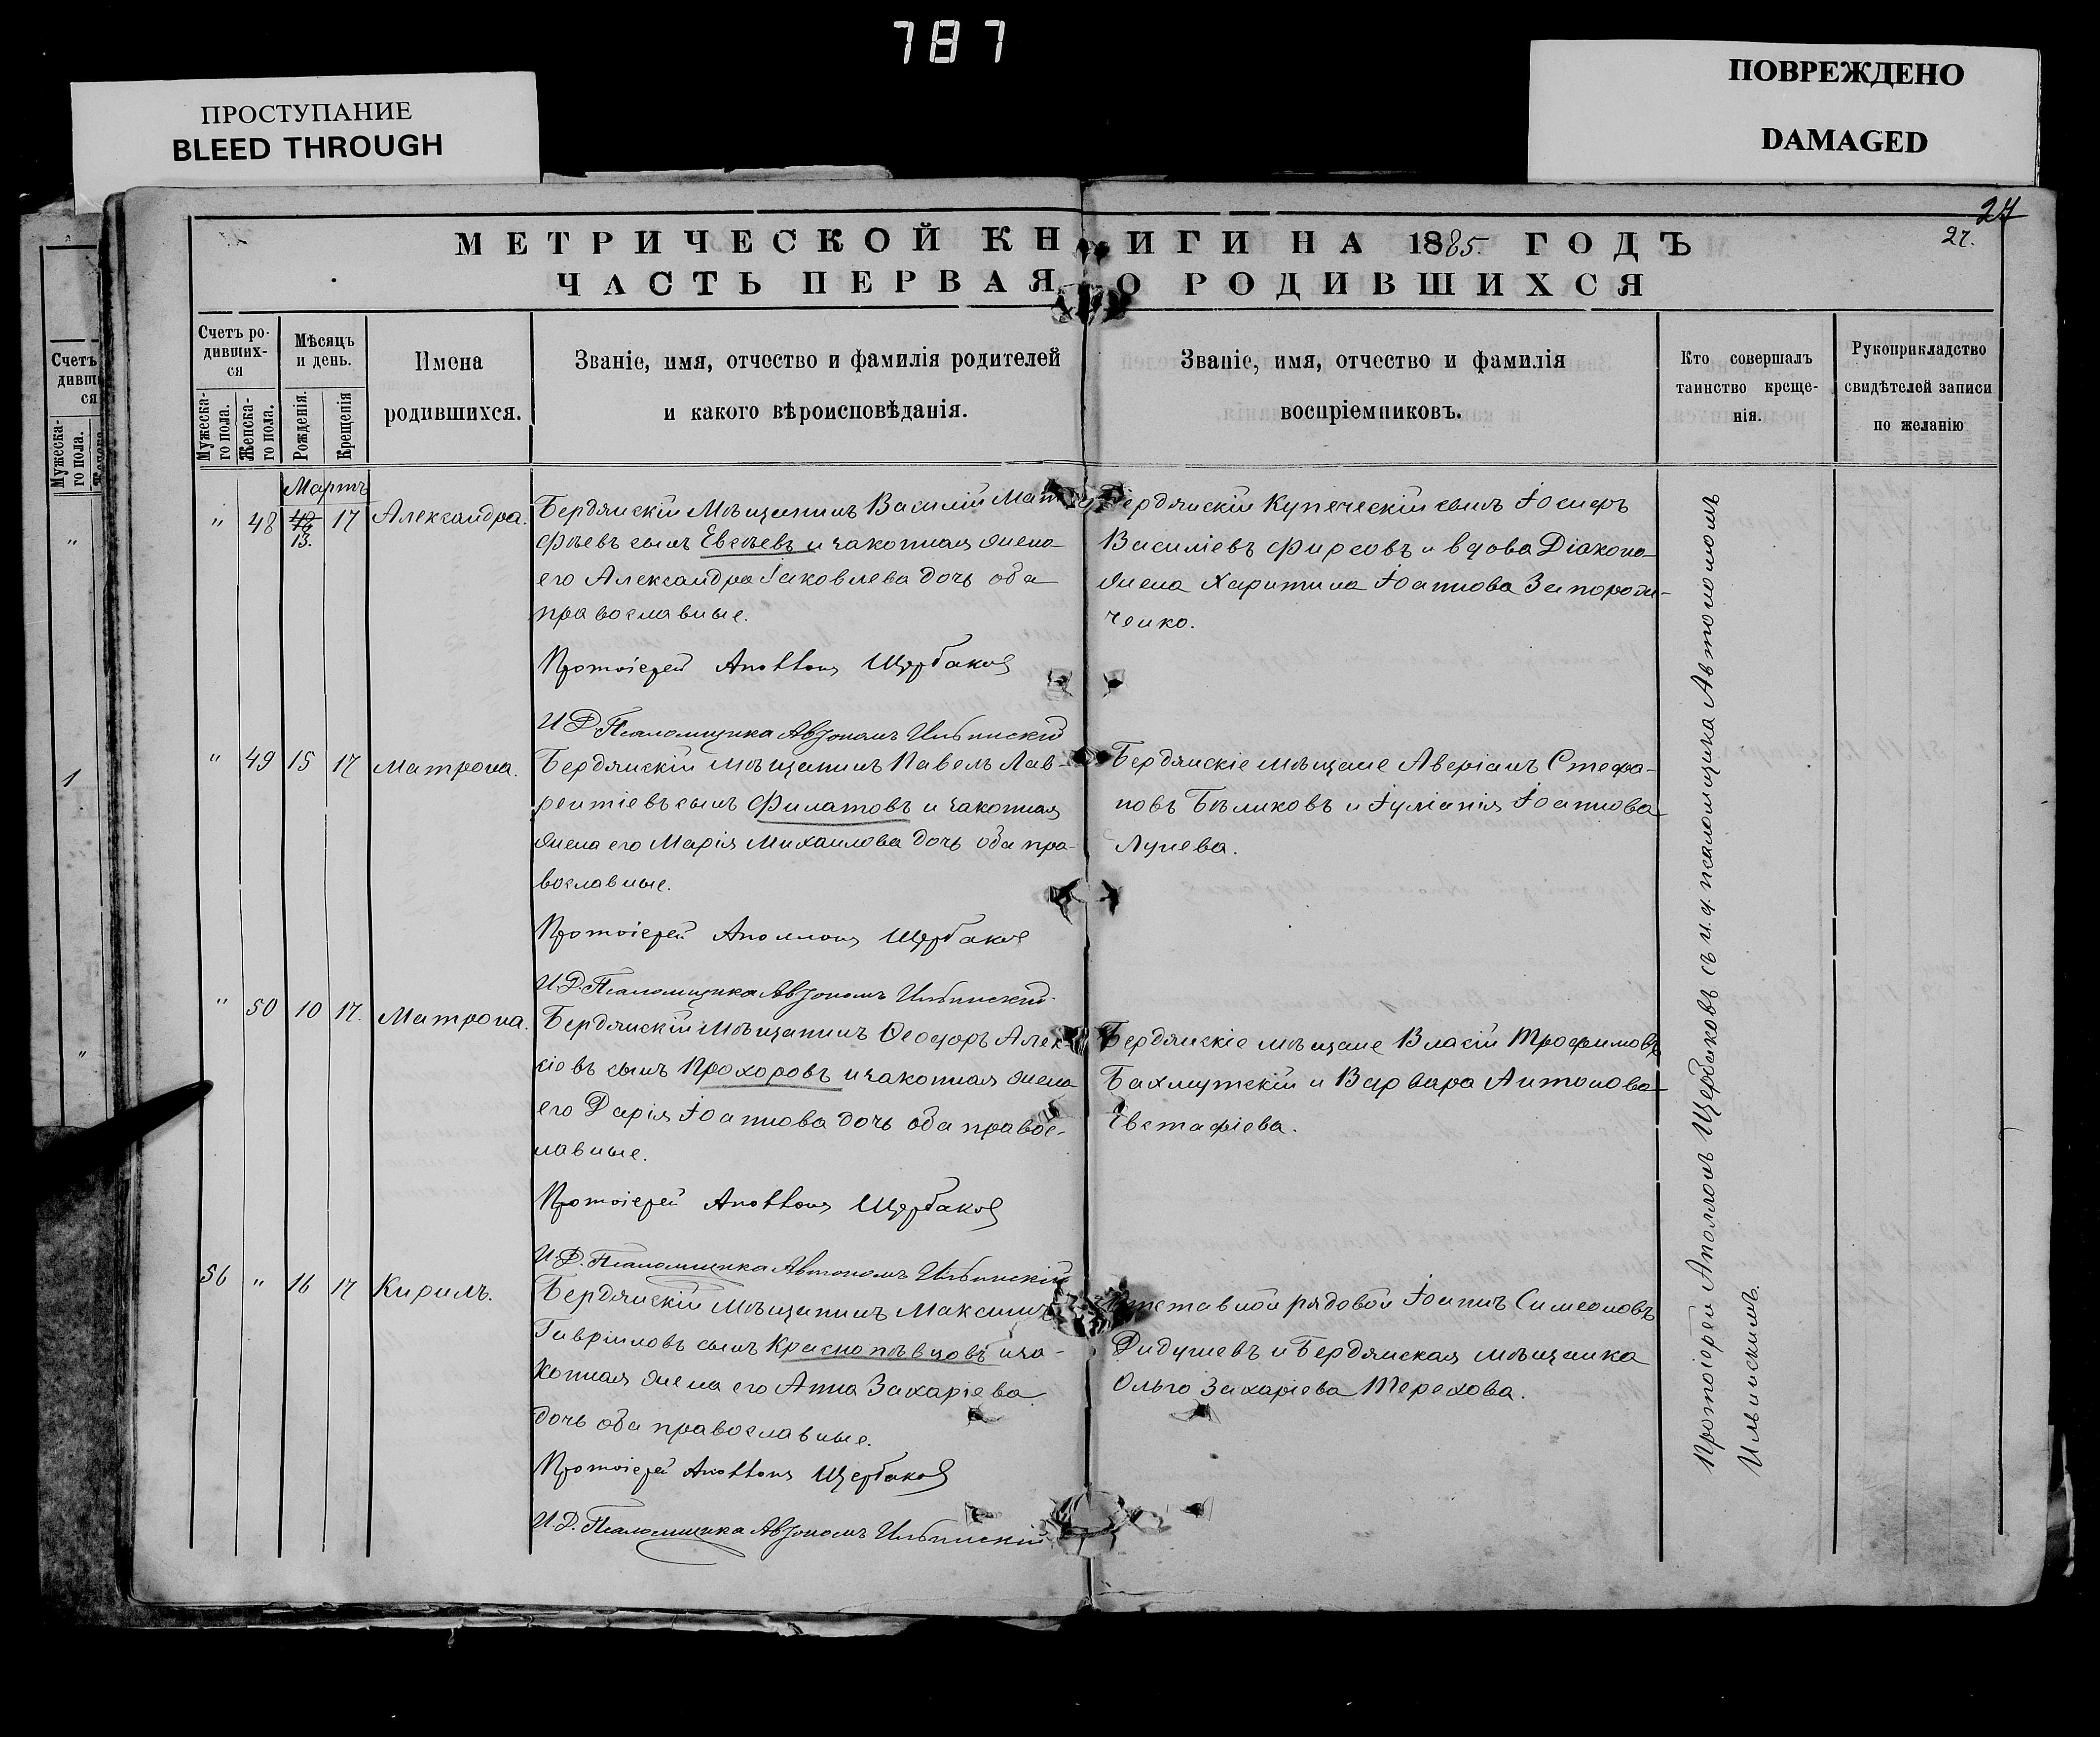 787
ПРОСТУПАНИЕ
BLEED THROUGH
ПОВРЕЖДЕНО
DAMAGED
27
27.
МЕТРИЧЕСКОЙ КНИГИ НА 1885. ГОДЪ
ЧАСТЬ ПЕРВАЯ О РОДИВШИХСЯ
Счетъ ро-
дивших-
ся
Мужеска-
го пола.
Женска-
го пола.
Мѣсяцъ
и день.
Рожденія.
Крещенія
Имена
родившихся.
Званіе, имя, отчество и фамилія родителей
и какого вѣроисповѣданія.
Званіе, имя, отчество и фамилія
воспріемниковъ.
Кто совершалъ
таинство креще-
нія.
Рукоприкладство
свидѣтелей записи
по желанію
Мартъ
" 48 13. 17 Александра.
Бердянскій Мѣщанинъ Василій Мат
фѣевъ сынъ Евсѣевъ и законная жена
его Александра Іаковлева дочь оба
православные.
Протоіерей Аполлонъ Щербаковъ
И.Д. Псаломщика Автономъ Ильинскій
Бердянскій Купеческій сынъ Іосифъ
Василіевъ Фирсовъ и вдова Діакона
жена Харитина Іоаннова Запорож-
ченко.
" 49 15 17 Матрона.
Бердянскій мѣщанинъ Павелъ Лав-
рентіевъ сынъ Филатовъ и законная
жена его Марія Михаилова дочь оба пра-
вославные.
Протоіерей Аполлонъ Щербаковъ
И.Д. Псаломщика Автономъ Ильинскій
Бердянскіе мѣщане Аверіанъ Стефа-
новъ Бѣликовъ и Іуліанія Іоаннова
Лунева.
" 50 10 17. Матрона.
Бердянскій мѣщанинъ Ѳеодоръ Алек-
сіевъ сынъ Прохоровъ и законная жена
его Дарія Іоаннова дочь оба правос-
лавные.
Протоіерей Аполлонъ Щербаковъ
И.Д. Псаломщика Автономъ Ильинскій
Бердянскіе мѣщане Власій Трофимовъ
Бахмутскій и Варвара Антонова
Евстафіева.
56 " 16 17 Кирилъ.
Бердянскій мѣщанинъ Максимъ
Гавріиловъ сынъ Краснопѣвцовъ и за-
конная жена его Анна Захаріева
дочь оба православные.
Протоіерей Аполлонъ Щербаковъ
И.Д. Псаломщика Автономъ Ильинскій
Отставной рядовой Іоаннъ Симеоновъ
Дидушевъ и Бердянская мѣщанка
Ольга Захаріева Терехова.
Протоіерей Аполлонъ Щербаковъ съ и.д. псаломщика Автономомъ
Ильинскимъ.